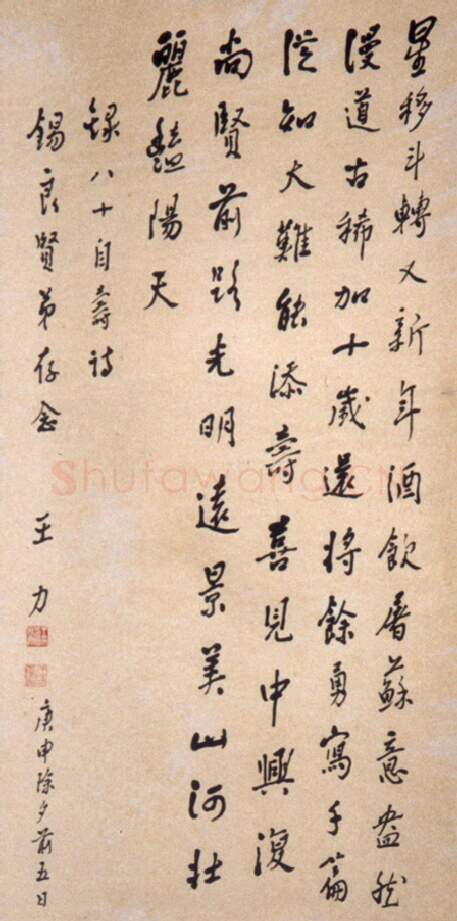 星移斗轉又新年酒飲屠蘇意盎然
漫道古稀加十歲還將餘勇寫千篇
從知大難能添壽喜見中興復
尚賢前路光明遠景美山河壯
麗豔陽天
錄八十自壽詩
錫良賢弟存念
王力
庚申除夕前五日
Shufawang.cn